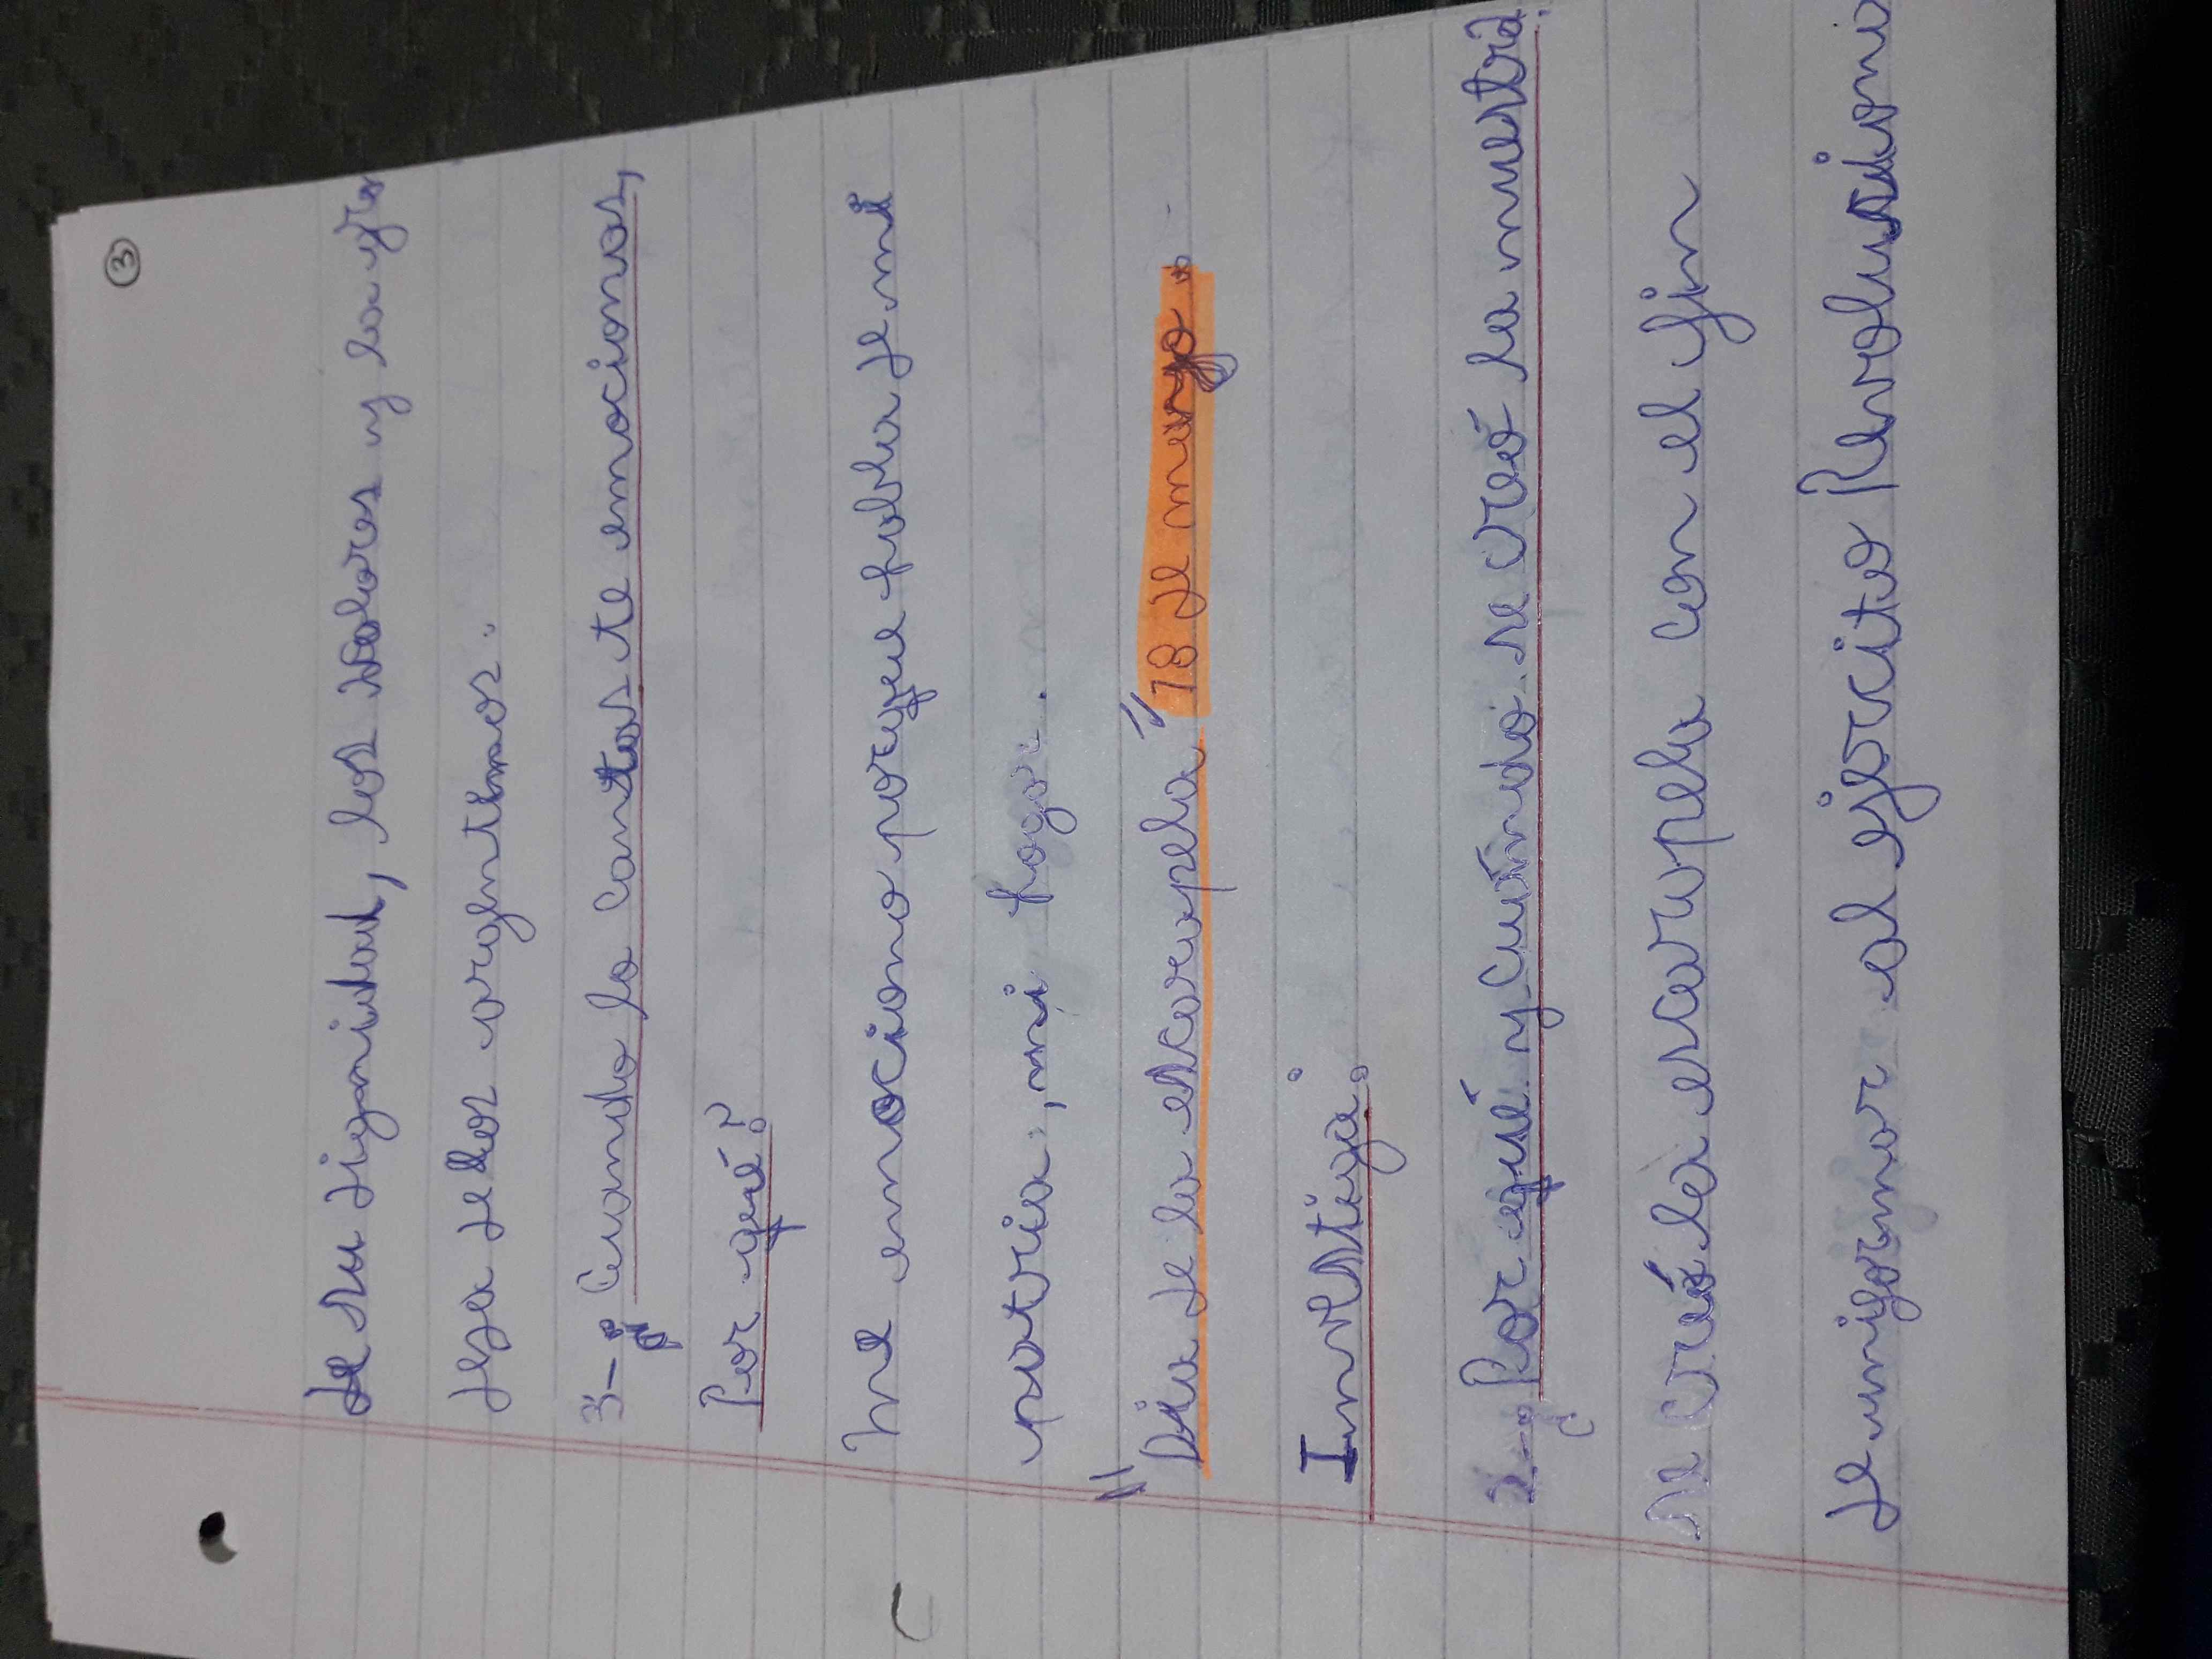 3
de su dignidad, los valores y la gran
deza de los argentinos.
3-¿Cuando lo cantas te emocionas,
Por qué?
Me emociono porque habla de mi
patria, mi hogar.
"Día de la escarapela" 18 de mayo.
Investiga:
1-¿Por qué y cuándo se creó la nuestra?
Se creó la escarapela con el fin
de uniformar al ejercito Revolusioni